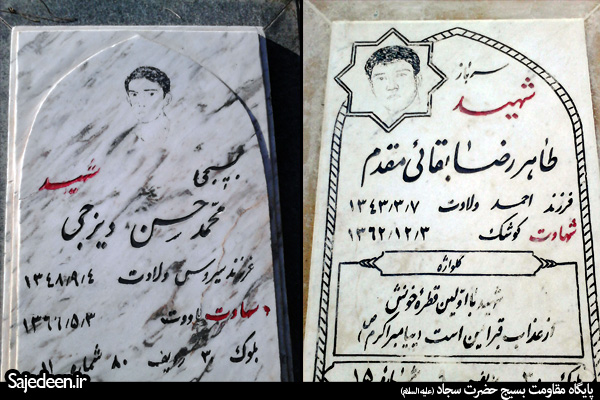 شهید
بسیجی
محمد حسن دیزجی
فرزند سیروس ولادت ۱۳۴۸/۹/۴
شهادت ۱۳۶۶/۵/۳
بلوک ۳۰ ردیف ۸۰
سرباز
شهید
طاهر رضا بقائی مقدم
فرزند احمد ولادت ۱۳۴۳/۳/۷
شهادت کوشک ۱۳۶۲/۱۲/۳
گلواژه
شهید با اولین قطره خونش
از عذاب قبر ایمن است (پیامبر اکرم ص)
Sajedeen.ir
پایگاه مقاومت بسیج حضرت سجاد (علیه السلام)